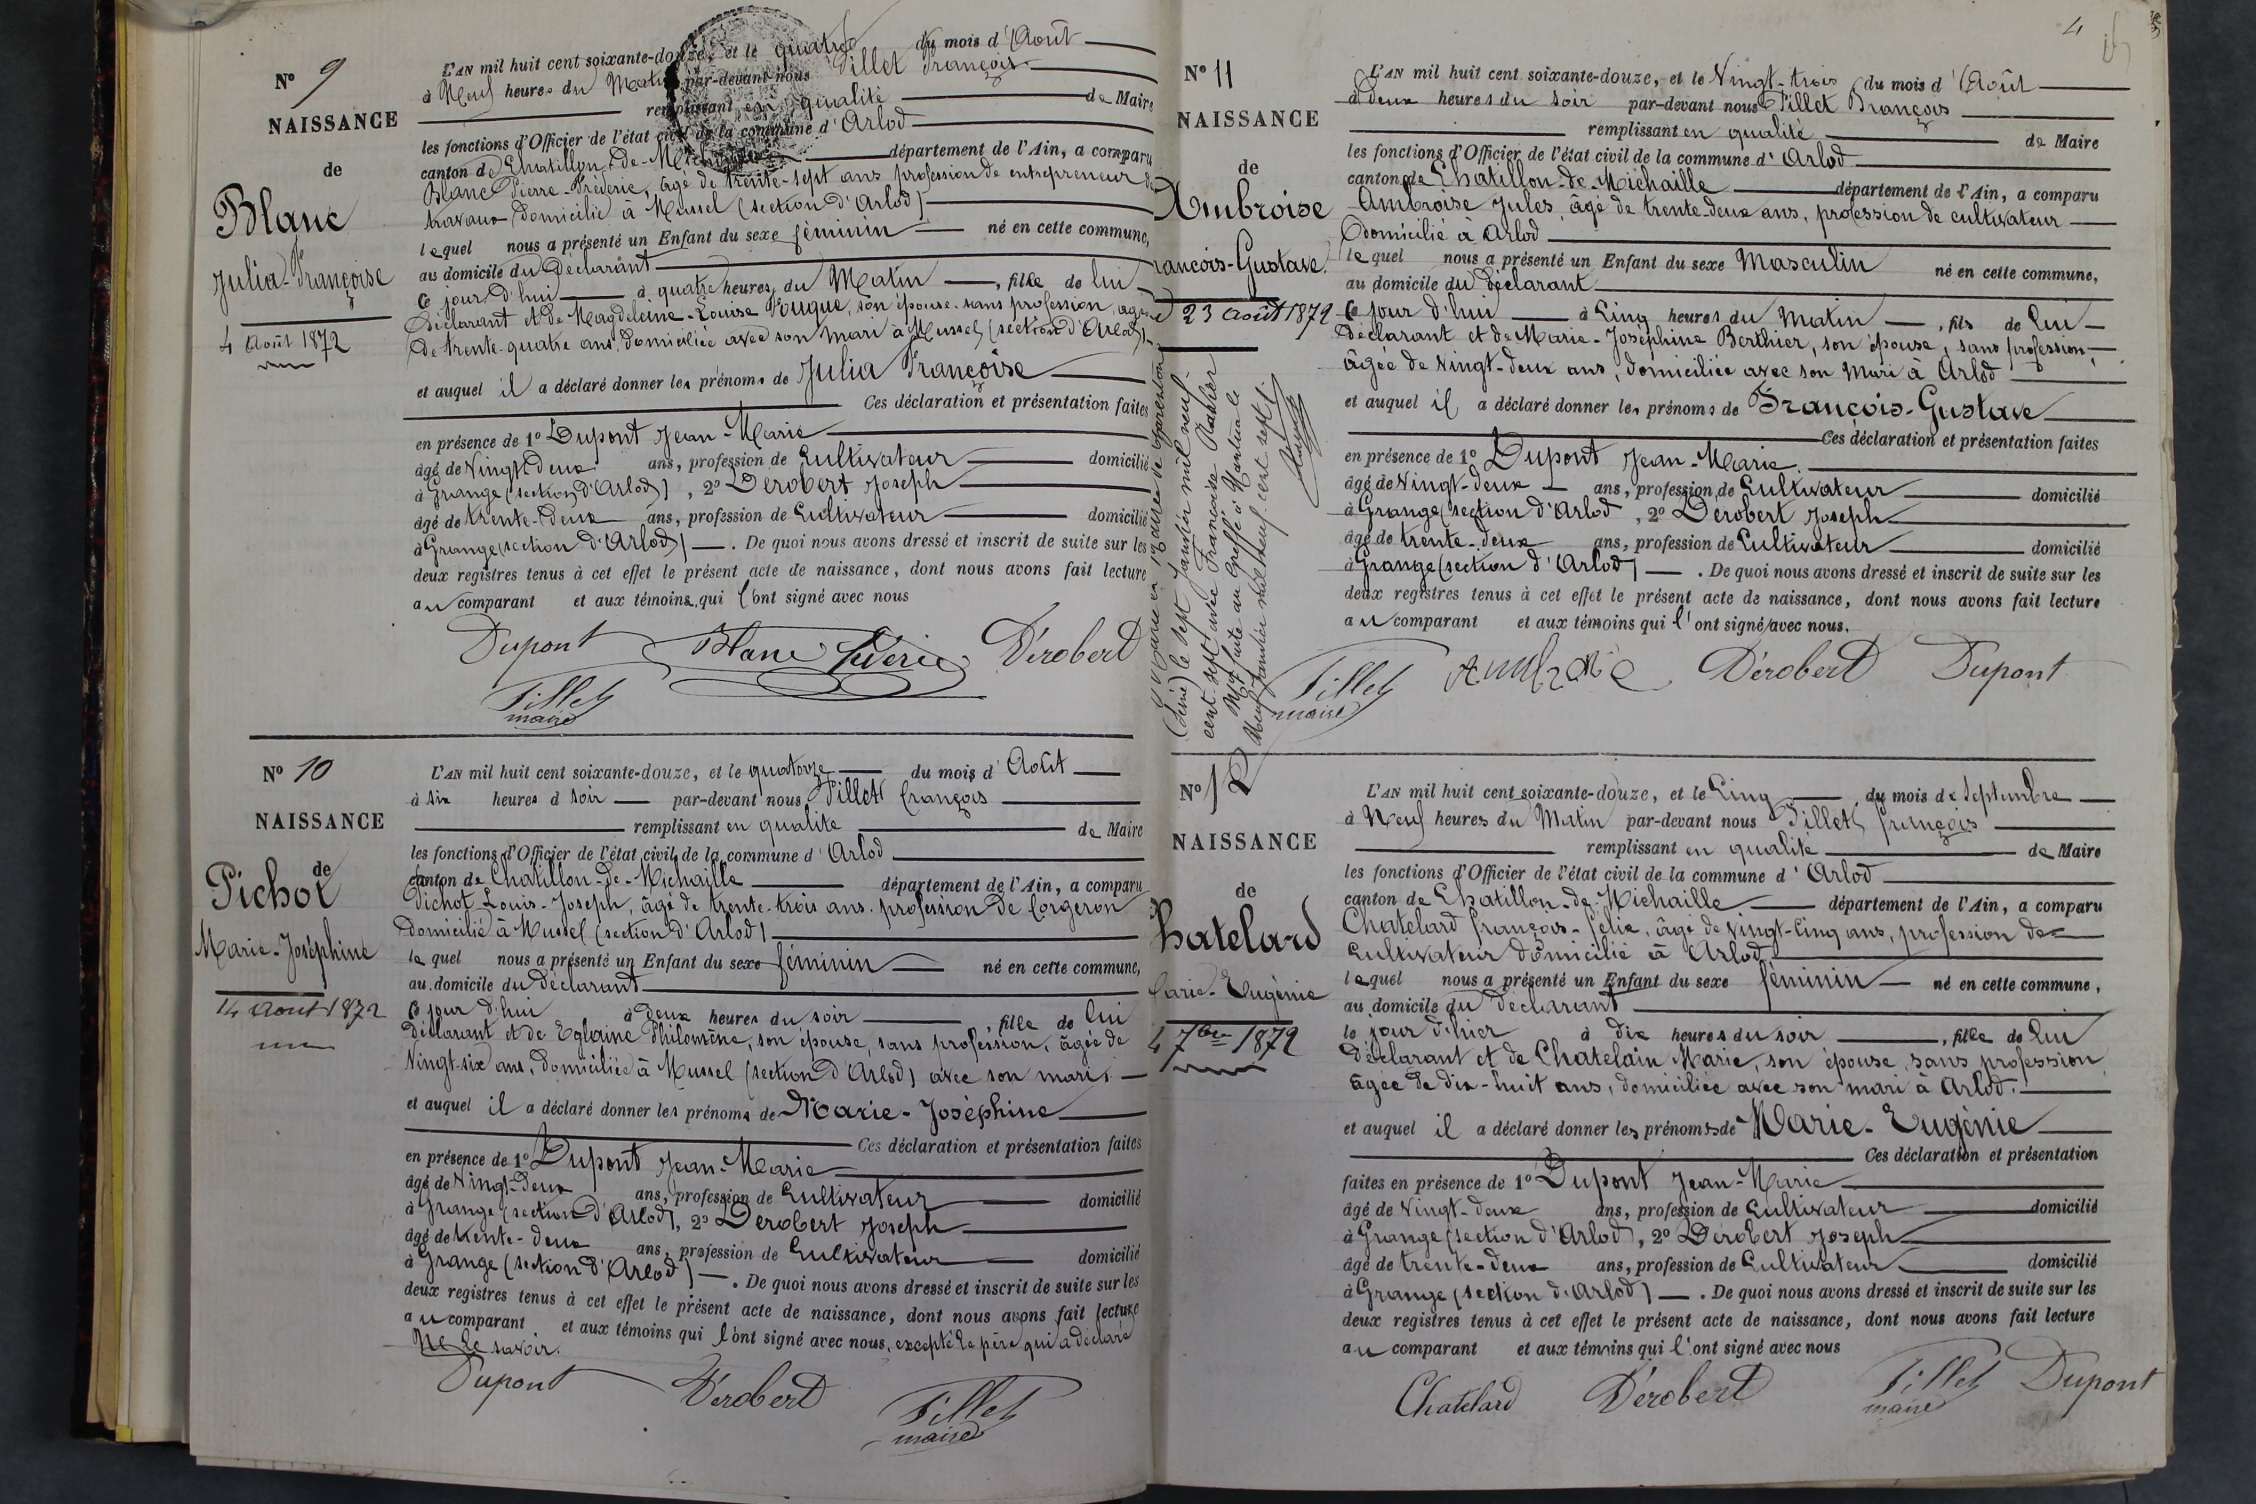 N° 9
NAISSANCE
de
Blanc
Julia-Françoise
4 Août 1872
L'AN mil huit cent soixante-douze, et le quatre du mois d'Août
à Neuf heures du Matin par-devant nous Pillet François
remplissant en qualité de Maire
les fonctions d'Officier de l'état civil de la commune d'Arlod
canton de Chatillon-de-Michaille département de l'Ain, a comparu
Blanc Pierre-Fréderic, âgé de trente-sept ans profession de entrepreneur de
travaux domicilié à Mussel (section d'Arlod)
lequel nous a présenté un Enfant du sexe féminin né en cette commune,
au domicile du Déclarant
ce jour d'hui à quatre heures du Matin, fille de lui
Déclarant et de Magdeleine-Louise Fougue, son épouse sans profession, agée
de trente-quatre ans, domiciliée avec son mari à Mussel (section d'Arlod)
et auquel il a déclaré donner les prénoms de Julia Françoise
Ces déclaration et présentation faites
en présence de 1° Dupont Jean-Marie
âgé de Vingt-Deux ans, profession de Cultivateur domicilié
à Grange (section d'Arlod), 2° Derobert Joseph
âgé de trente-Deux ans, profession de Cultivateur domicilié
à Grange (section d'Arlod). De quoi nous avons dressé et inscrit de suite sur les
deux registres tenus à cet effet le présent acte de naissance, dont nous avons fait lecture
au comparant et aux témoins, qui l'ont signé avec nous
Dupont Blanc Fréderic Dérobert
Pillet
maire
N° 10
NAISSANCE
de
Pichot
Marie-Joséphine
14 Aout 1872
L'AN mil huit cent soixante-douze, et le quatorze du mois d'Août
à six heures d soir par-devant nous Pillet François
remplissant en qualité de Maire
les fonctions d'Officier de l'état civil de la commune d'Arlod
canton de Chatillon-de-Michaille département de l'Ain, a comparu
Pichot Louis-Joseph, âgé de trente-trois ans. profession de forgeron
Domicilié à Mussel (section d'Arlod)
lequel nous a présenté un Enfant du sexe féminin né en cette commune,
au domicile du Déclarant
ce jour d'hui à deux heures du soir, fille de lui
déclarant et de Eglaine Philomène, son épouse, sans profession, âgée de
Vingt-six ans, Domiciliée à Mussel (section d'Arlod) avec son mari
et auquel il a déclaré donner les prénoms de Marie-Joséphine
Ces déclaration et présentation faites
en présence de 1° Dupont Jean-Marie
âgé de Vingt-Deux ans, profession de Cultivateur domicilié
à Grange (section d'Arlod), 2° Derobert Joseph
âgé de trente-deux ans, profession de Cultivateur domicilié
à Grange (section d'Arlod). De quoi nous avons dressé et inscrit de suite sur les
deux registres tenus à cet effet le présent acte de naissance, dont nous avons fait lecture
au comparant et aux témoins qui l'ont signé avec nous, excepté le père qui a déclaré
Ne le savoir.
Dupont Dérobert
Pillet
maire
4
N° 11
NAISSANCE
de
Ambroise
rancois-Gustave
23 Août 1872
L'AN mil huit cent soixante-douze, et le Vingt-trois du mois d'Août
à deux heures du soir par-devant nous Pillet François
remplissant en qualité de Maire
les fonctions d'Officier de l'état civil de la commune d'Arlod
canton de Chatillon-de-Michaille département de l'Ain, a comparu
Ambroise Jules, âgé de trente-deux ans, profession de cultivateur
Domicilié à Arlod
lequel nous a présenté un Enfant du sexe Masculin né en cette commune,
au domicile du Déclarant
Ce jour d'hui à Cinq heures du Matin, fils de lui
Déclarant et de Marie-Joséphine Berthier, son épouse, sans profession,
âgée de Vingt-deux ans, Domiciliée avec son Mari à Arlod
et auquel il a déclaré donner les prénoms de François-Gustave
Ces déclaration et présentation faites
en présence de 1° Dupont Jean-Marie
âgé de Vingt-deux ans, profession de Cultivateur domicilié
à Grange (section d'Arlod, 2° Derobert Joseph
âgé de trente-deux ans, profession de Cultivateur domicilié
à Grange (section d'Arlod). De quoi nous avons dressé et inscrit de suite sur les
deux registres tenus à cet effet le présent acte de naissance, dont nous avons fait lecture
au comparant et aux témoins qui l'ont signé avec nous.
Ambroise Dérobert Dupont
Pillet
maire
(Seine) le sept Janvier mil neuf
cent sept avec Françoise
faite au Greffe à Nantua le
Janvier mil neuf cent sept
N° 12
NAISSANCE
de
hatelard
arie-Eugénie
4 7bre 1872
L'AN mil huit cent soixante-douze, et le Cinq du mois de Septembre
à Neuf heures du Matin par-devant nous Pillet François
remplissant en qualité de Maire
les fonctions d'Officier de l'état civil de la commune d'Arlod
canton de Chatillon-de-Michaille département de l'Ain, a comparu
Chatelard François-Félix, âgé de Vingt-Cinq ans, profession de
Cultivateur domicilié à Arlod
lequel nous a présenté un Enfant du sexe féminin né en cette commune,
au domicile du Déclarant
le jour d'hier à dix heures du soir, fille de lui
Déclarant et de Chatelain Marie, son épouse, sans profession
âgée de dix-huit ans, domiciliée avec son mari à Arlod.
et auquel il a déclaré donner les prénoms de Marie-Eugénie
Ces déclaration et présentation
faites en présence de 1° Dupont Jean-Marie
âgé de Vingt-deux ans, profession de Cultivateur domicilié
à Grange (section d'Arlod), 2° Derobert Joseph
âgé de trente-deux ans, profession de Cultivateur domicilié
à Grange (section d'Arlod). De quoi nous avons dressé et inscrit de suite sur les
deux registres tenus à cet effet le présent acte de naissance, dont nous avons fait lecture
au comparant et aux témoins qui l'ont signé avec nous
Chatelard Dérobert Pillet Dupont
maire